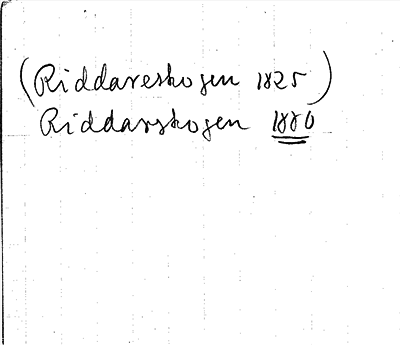 (Riddareskogen 1825)
Riddarskogen 1880